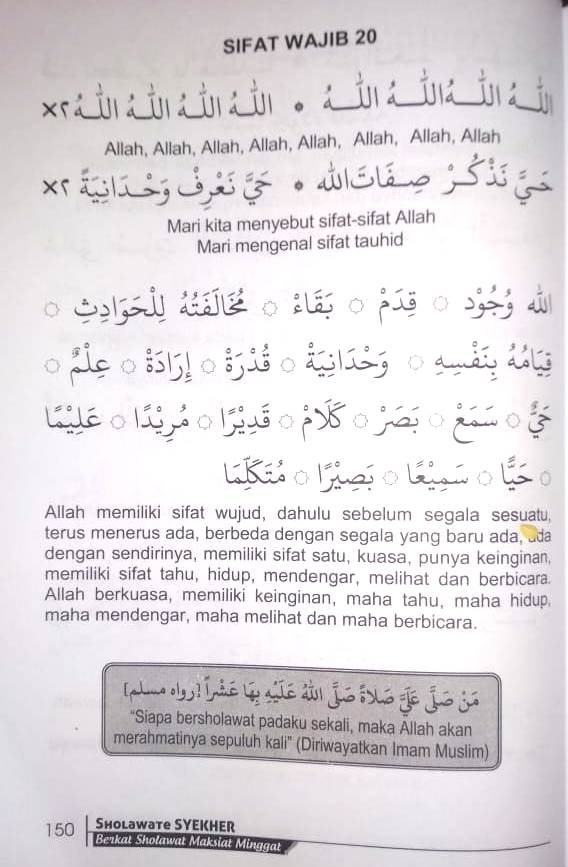 SIFAT WAJIB 20
اَللّٰهُ اَللّٰهُ اَللّٰهُ اَللّٰهُ • اَللّٰهُ اَللّٰهُ اَللّٰهُ اَللّٰهُ ×٢
Allah, Allah, Allah, Allah, Allah, Allah, Allah, Allah
حَيَّ نَذْكُرْ صِفَاتَ الله • حَيَّ نَعْرِفْ وَحْدَانِيَةْ ×٢
Mari kita menyebut sifat-sifat Allah
Mari mengenal sifat tauhid
الله وُجُوْد ○ قِدَمْ ○ بَقَاءْ ○ مُخَالَفَتُهُ لِلْحَوَادِثِ ○
قِيَامُهُ بِنَفْسِهِ ○ وَحْدَانِيَةْ ○ قُدْرَةْ ○ إِرَادَةْ ○ عِلْمٌ ○
حَيٌّ ○ سَمَعْ ○ بَصَرْ ○ كَلَامْ ○ قَدِيْرًا ○ مُرِيْدًا ○ عَلِيْمًا
○ حَيًّا ○ سَمِيْعًا ○ بَصِيْرًا ○ مُتَكَلِّمًا
Allah memiliki sifat wujud, dahulu sebelum segala sesuatu,
terus menerus ada, berbeda dengan segala yang baru ada, ada
dengan sendirinya, memiliki sifat satu, kuasa, punya keinginan,
memiliki sifat tahu, hidup, mendengar, melihat dan berbicara.
Allah berkuasa, memiliki keinginan, maha tahu, maha hidup,
maha mendengar, maha melihat dan maha berbicara.
مَنْ صَلَّى عَلَيَّ صَلَاةً صَلَّى اللهُ عَلَيْهِ بِهَا عَشْرًا [رواه مسلم]
“Siapa bersholawat padaku sekali, maka Allah akan
merahmatinya sepuluh kali” (Diriwayatkan Imam Muslim)
150 SHOLAWATE SYEKHER
Berkat Sholawat Maksiat Minggat